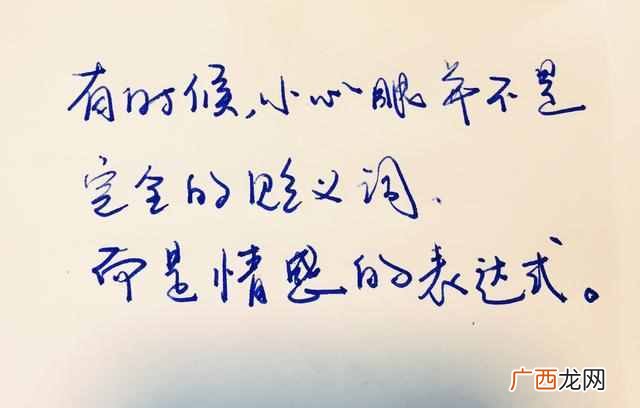 有时候，小心眼并不是
完全的贬义词、
而是情感的表达式。
广西龙网